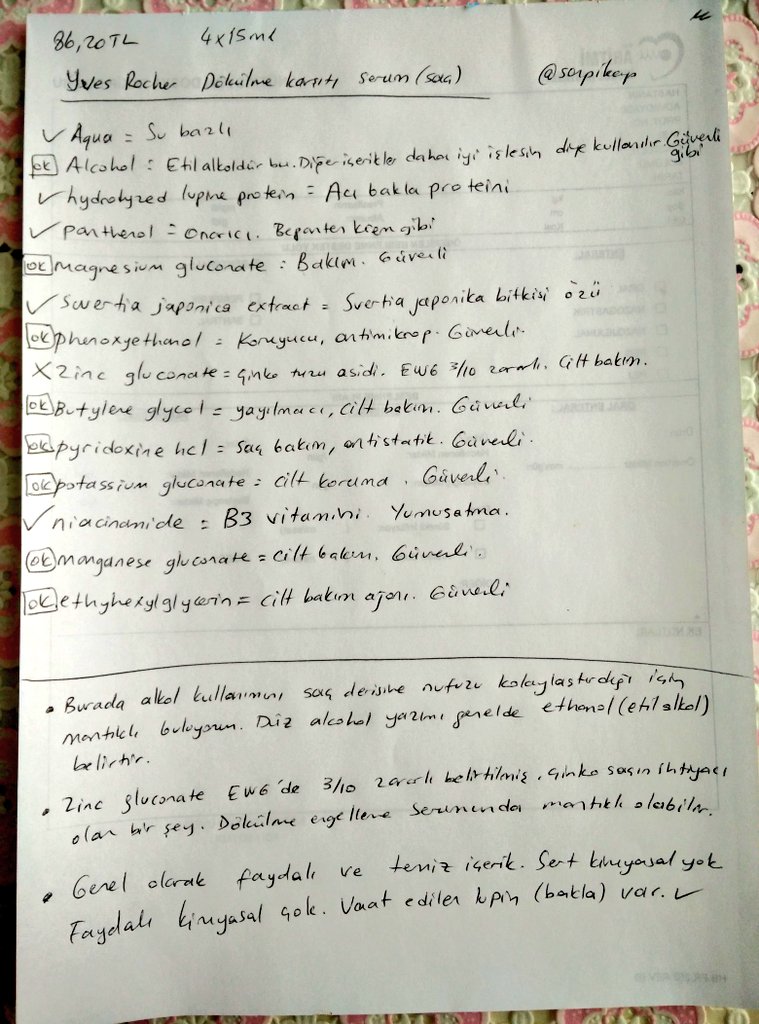 86,20TL 4x15ml
Yves Rocher Dökülme karşıtı serum (saç) @sarpikap
✓ Aqua = Su bazlı
ok Alcohol : Etil alkoldür bu. Diğer içerikler daha iyi işlesin diye kullanılır. Güvenli
gibi
✓ hydrolyzed lupine protein = Acı bakla proteini
✓ panthenol = onarıcı. Bepanten krem gibi
ok magnesium gluconate : Bakım. Güvenli
✓ Swertia japonica extract = Svertia japonika bitkisi özü
ok phenoxyethanol = Koruyucu, antimikrop. Güvenli.
X Zinc gluconate = çinko tuzu asidi. EWG 3/10 zararlı. Cilt bakım.
ok Butylene glycol = yayılmacı, cilt bakım. Güvenli
ok pyridoxine hcl = saç bakım, antistatik. Güvenli.
ok potassium gluconate = cilt koruma. Güvenli.
✓ niacinamide = B3 vitamini. Yumusatma.
ok manganese gluconate = cilt bakım. Güvenli.
ok ethyhexylglycerin = cilt bakım ajanı. Güvenli
• Burada alkol kullanımını saç derisine nufuzu kolaylaştırdığı için
mantıklı buluyorum. Düz alcohol yazımı genelde ethanol (etil alkol)
belirtir.
• Zinc gluconate EWG'de 3/10 zararlı belirtilmiş. çinko saçın ihtiyacı
olan bir şey. Dökülme engelleme serumunda mantıklı olabilir.
• Genel olarak faydalı ve temiz içerik. Sert kimyasal yok
Faydalı kimyasal çok. Vaat edilen lupin (bakla) var. ✓